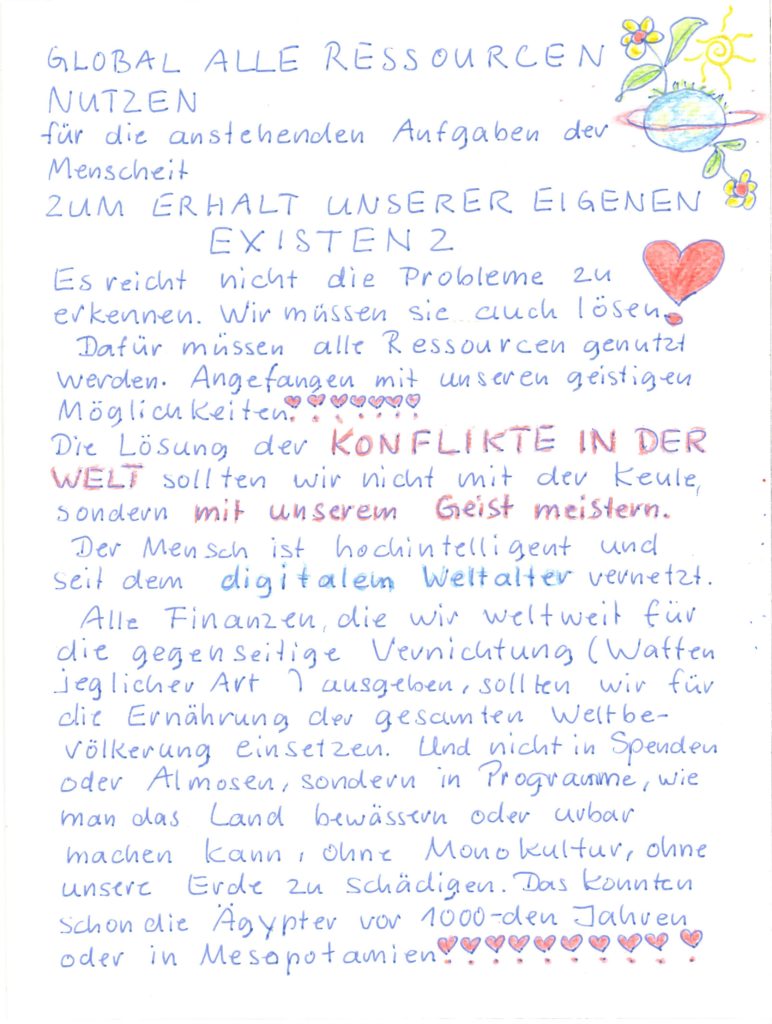 GLOBAL ALLE RESSOURCEN
NUTZEN
für die anstehenden Aufgaben der
Menscheit
ZUM ERHALT UNSERER EIGENEN
EXISTENZ
Es reicht nicht die Probleme zu
erkennen. Wir müssen sie auch lösen!
Dafür müssen alle Ressourcen genutzt
werden. Angefangen mit unseren geistigen
Möglichkeiten!!!!!!!
Die Lösung der KONFLIKTE IN DER
WELT sollten wir nicht mit der Keule,
sondern mit unserem Geist meistern.
Der Mensch ist hochintelligent und
seit dem digitalem Weltalter vernetzt.
Alle Finanzen, die wir weltweit für
die gegenseitige Vernichtung (Waffen
jeglicher Art) ausgeben, sollten wir für
die Ernährung der gesamten Weltbe-
völkerung einsetzen. Und nicht in Spenden
oder Almosen, sondern in Programme, wie
man das Land bewässern oder urbar
machen kann, ohne Monokultur, ohne
unsere Erde zu schädigen. Das konnten
schon die Ägypter vor 1000-den Jahren
oder in Mesopotamien!!!!!!!!!!